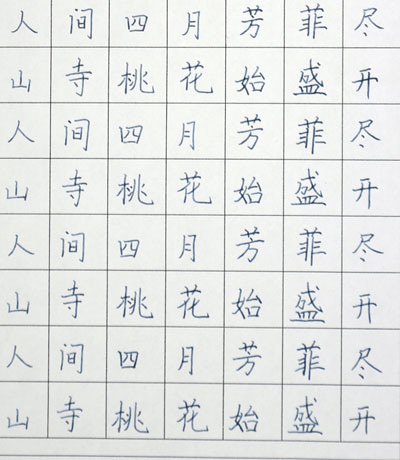 人间四月芳菲尽
山寺桃花始盛开
人间四月芳菲尽
山寺桃花始盛开
人间四月芳菲尽
山寺桃花始盛开
人间四月芳菲尽
山寺桃花始盛开